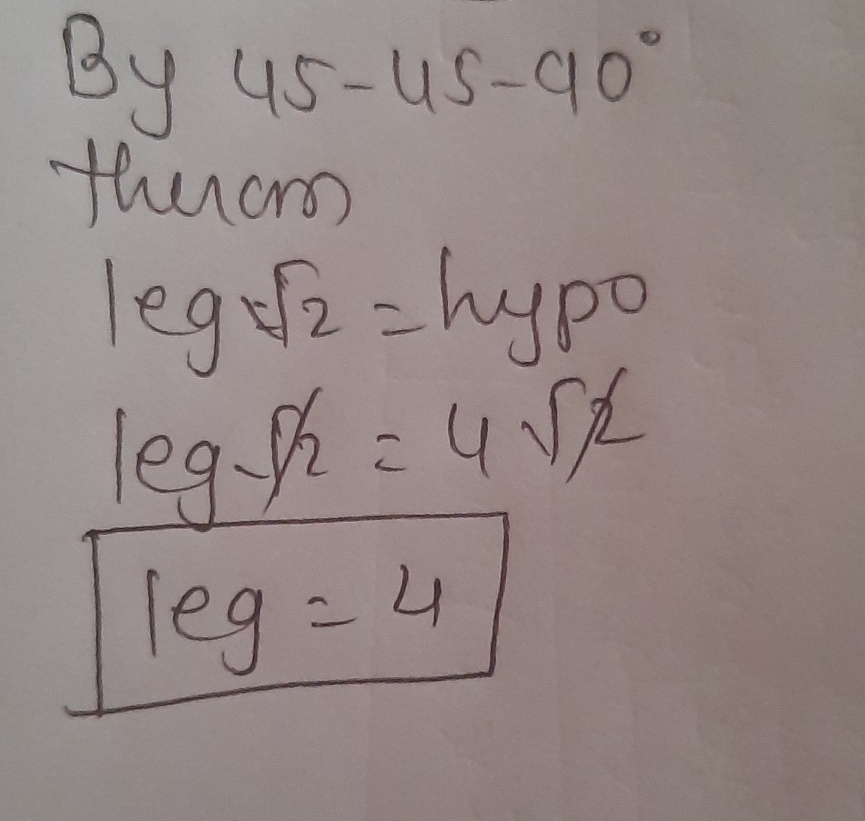 By 45-45-90°
therom
leg √2 = hypo
leg √2 = 4 √2
leg = 4